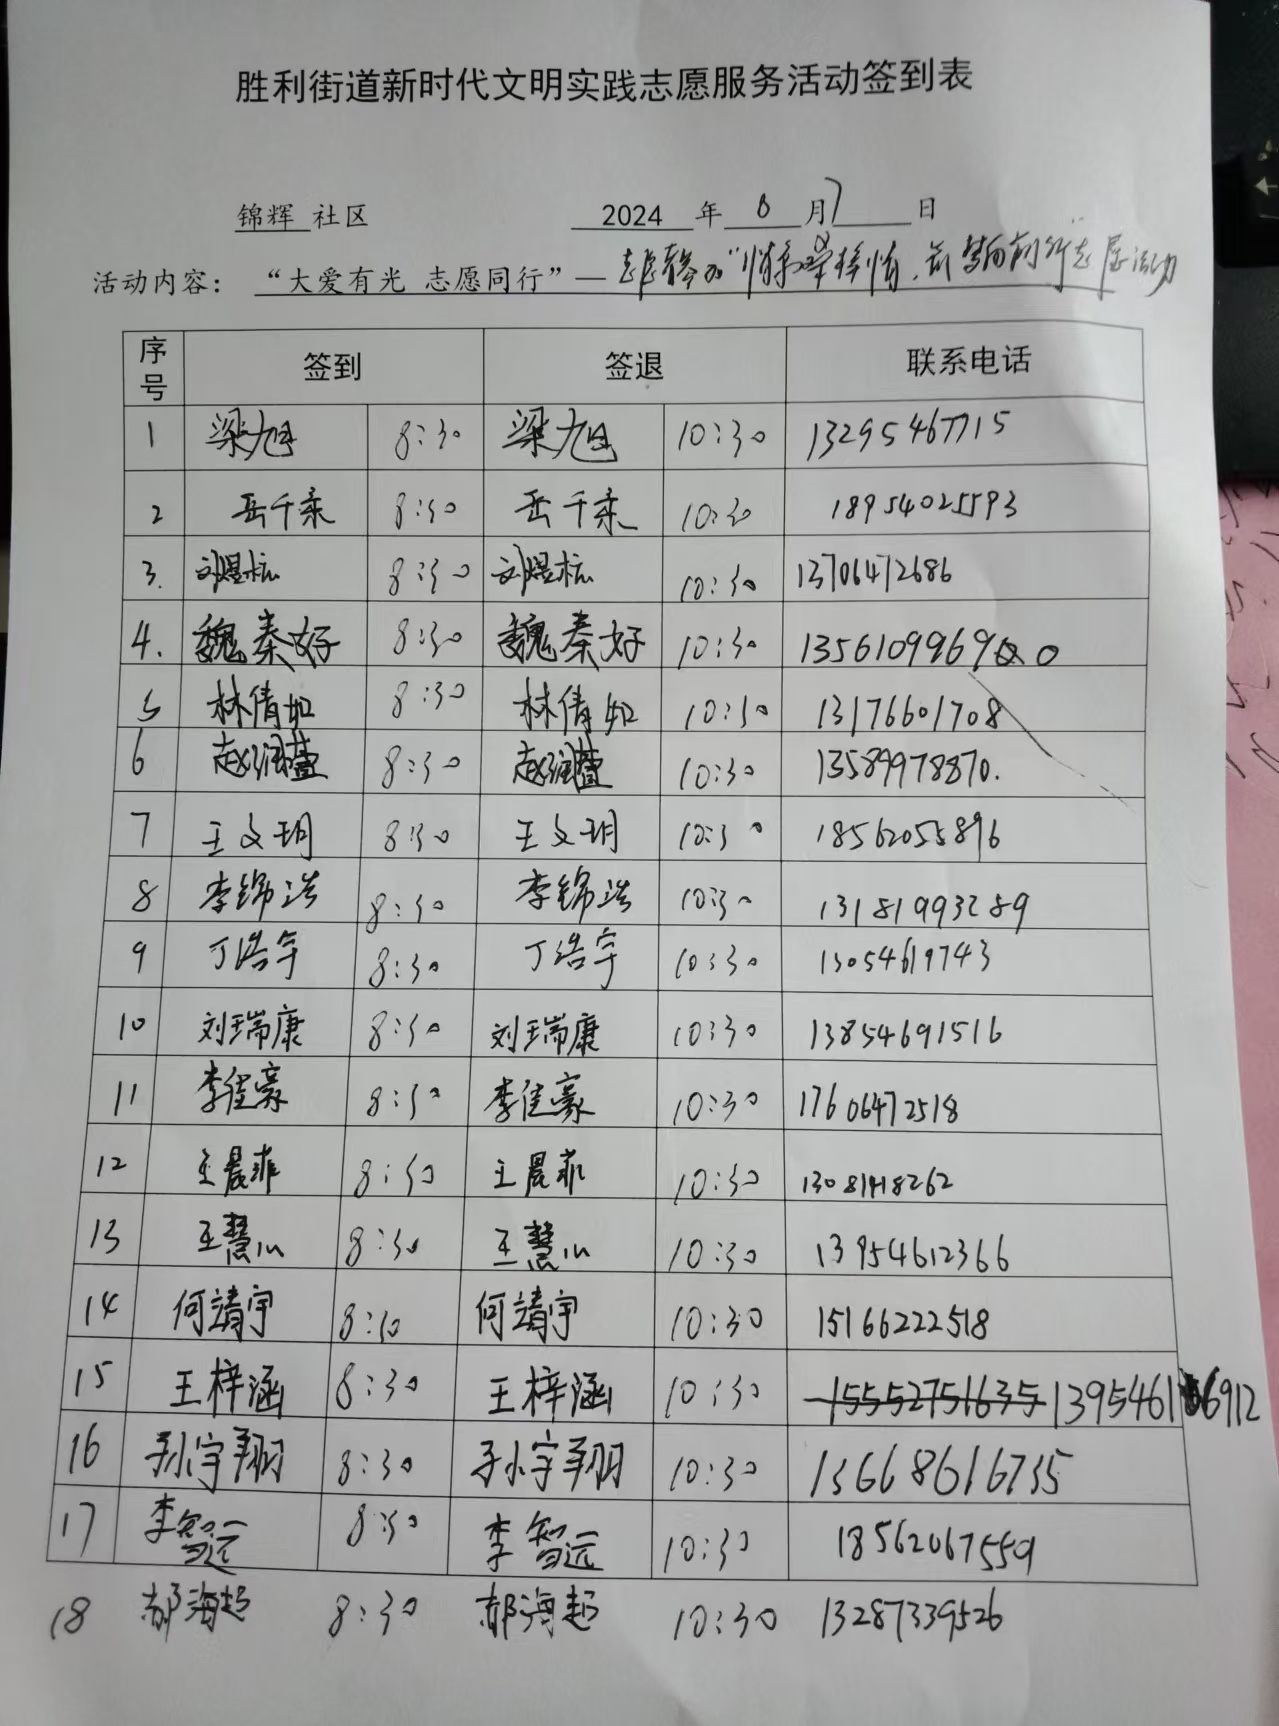 胜利街道新时代文明实践志愿服务活动签到表
锦辉 社区 2024 年 8 月 7 日
活动内容：“大爱有光 志愿同行”—
序号 签到 签退 联系电话
1 梁旭 8:30 梁旭 10:30 13295467715
2 岳千柔 8:30 岳千柔 10:30 18954025593
3. 刘煜杭 8:30 刘煜杭 10:30 13706472686
4. 魏秦好 8:30 魏秦好 10:30 1356109969 0
5 林倩如 8:30 林倩如 10:30 13176601708
6 赵润萱 8:30 赵润萱 10:30 13589978870.
7 王文玥 8:30 王文玥 10:30 18562055896
8 李锦浩 8:30 李锦浩 10:30 13181993289
9 丁浩宇 8:30 丁浩宇 10:30 13054619743
10 刘瑞康 8:30 刘瑞康 10:30 13854691516
11 李佳豪 8:30 李佳豪 10:30 17606472518
12 王晨菲 8:30 王晨菲 10:30 13081418262
13 王慧心 8:30 王慧心 10:30 13954612366
14 何靖宇 8:30 何靖宇 10:30 15166222518
15 王梓涵 8:30 王梓涵 10:30 15552751635 13954616912
16 孙宇翔 8:30 孙宇翔 10:30 13668616735
17 李智远 8:30 李智远 10:30 18562067559
18 郝海超 8:30 郝海超 10:30 13287339526